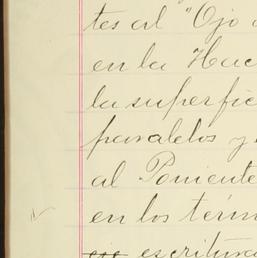 tes al "Ojo
en la Hac
la superfic
paralelos y
al Poniente
en los térm
escritura